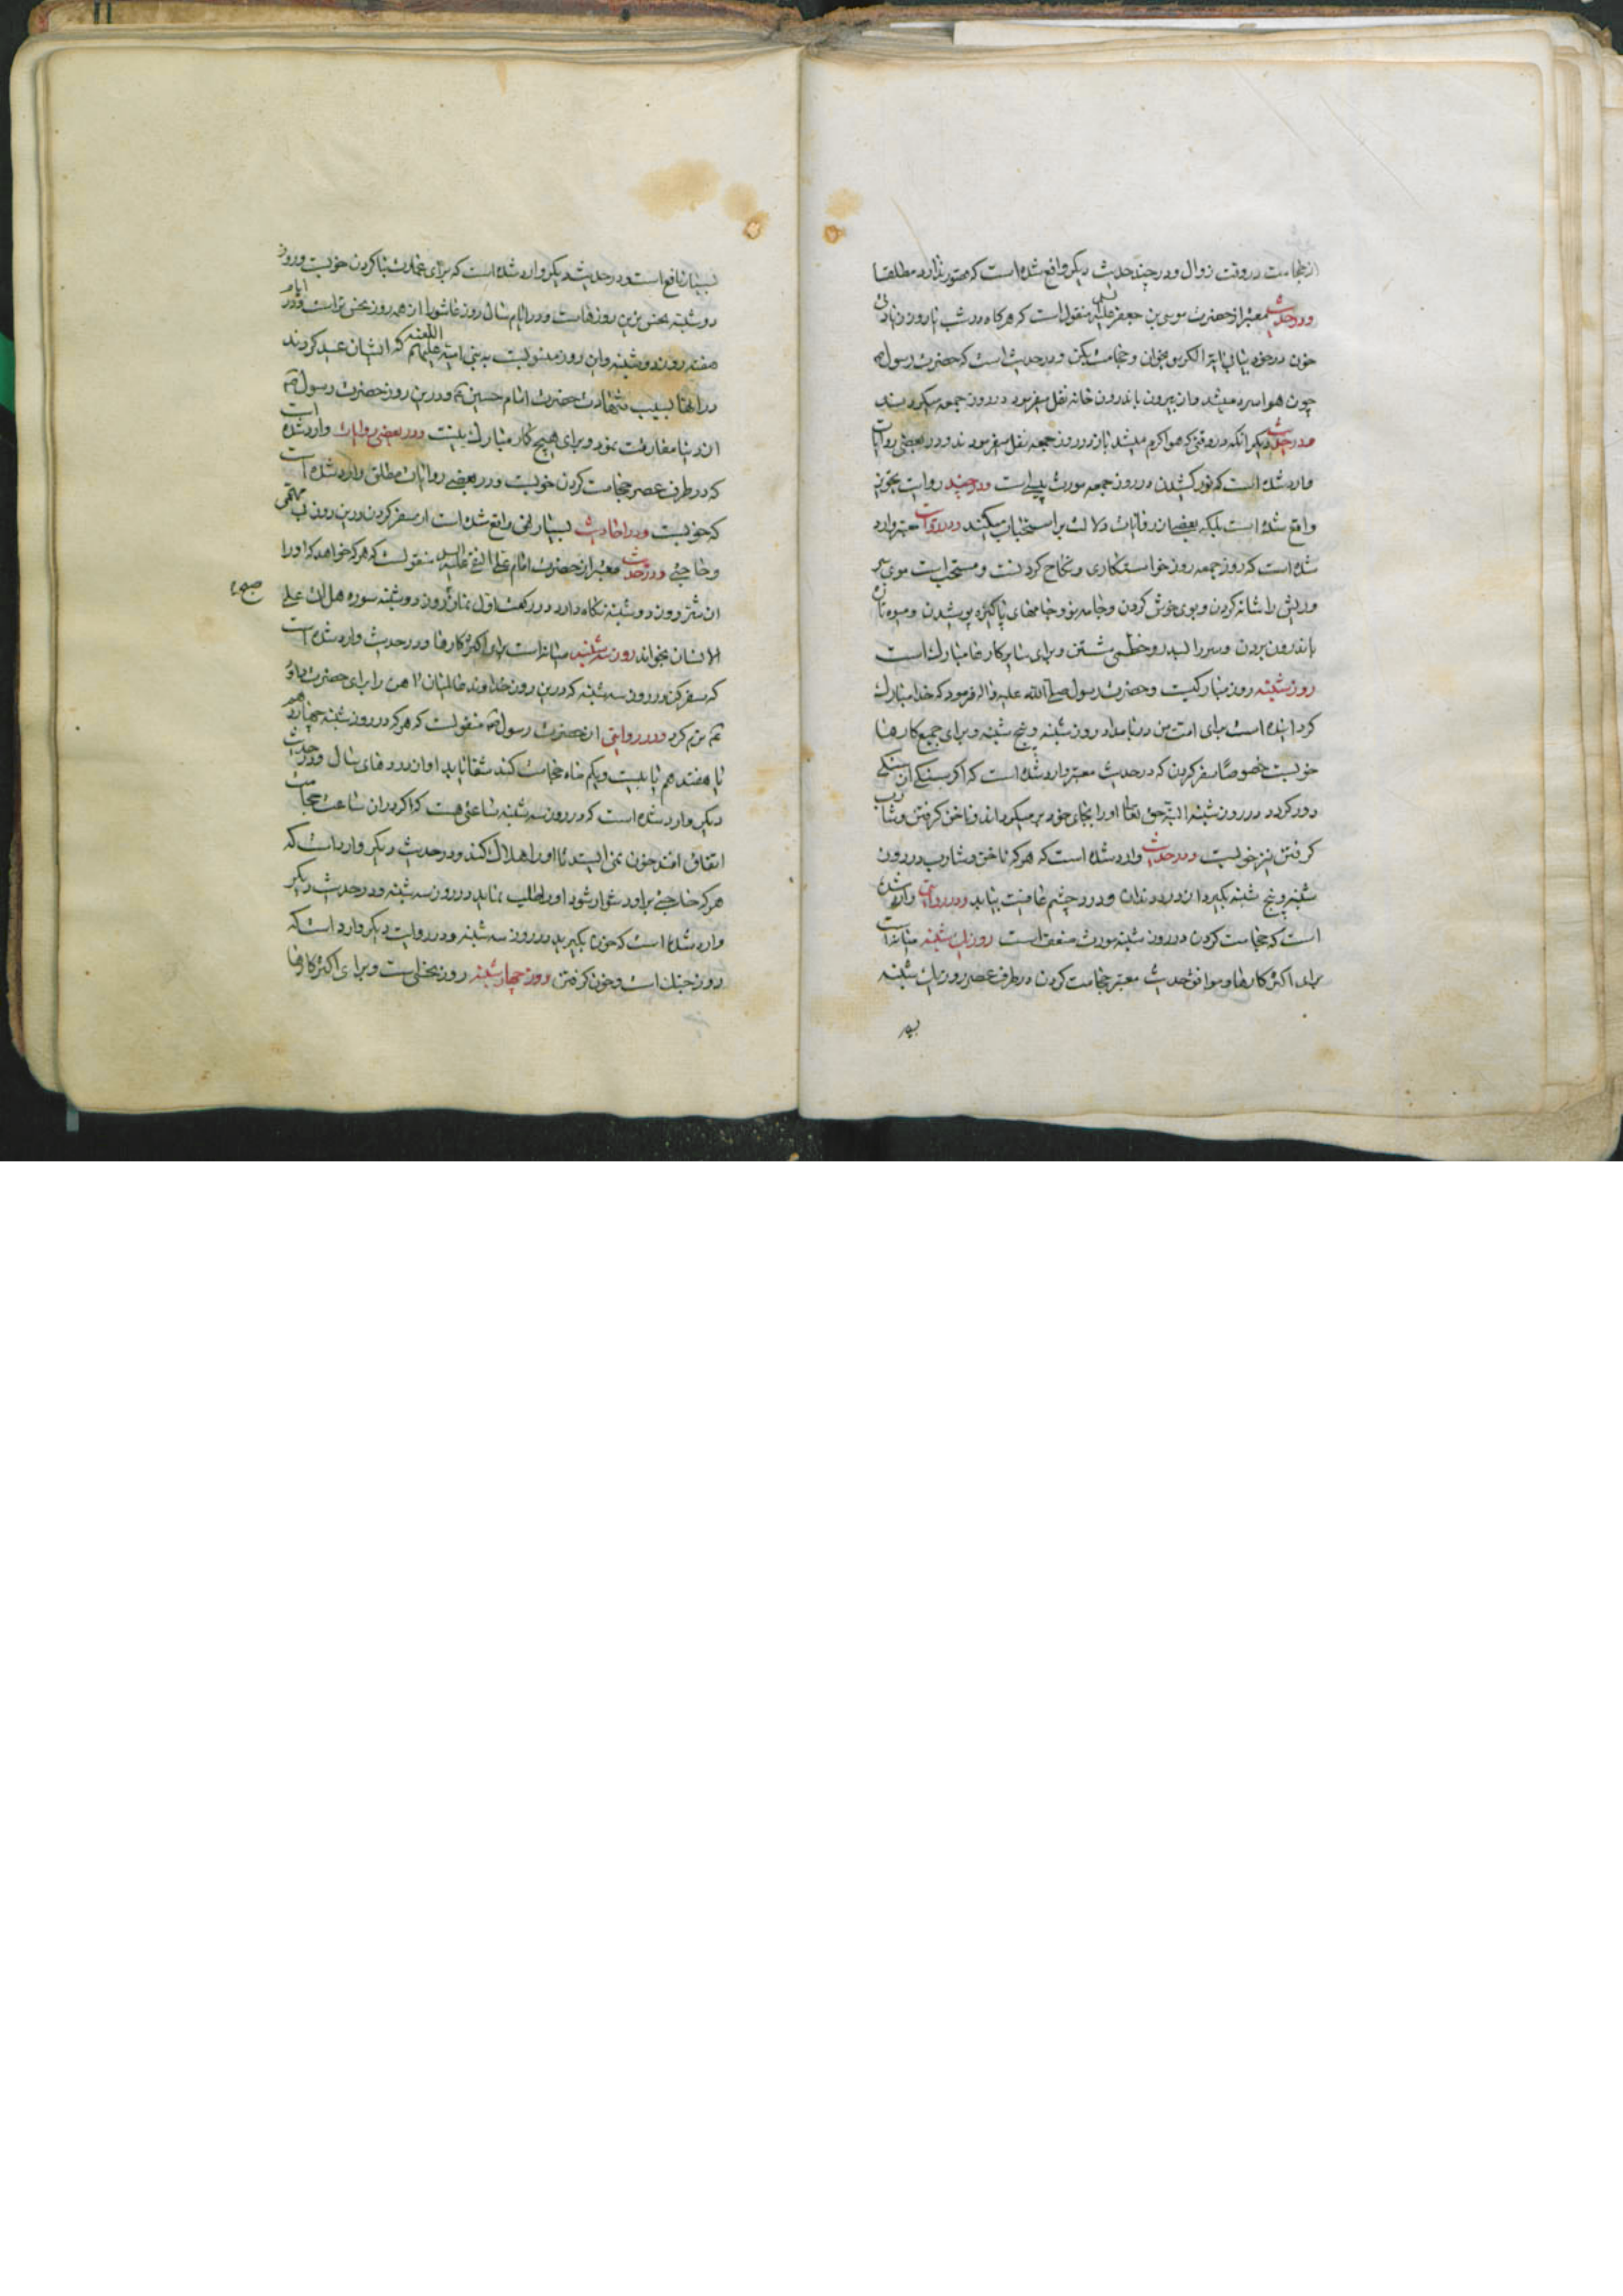 از حجامت در وقت زوال ودر چند حدیث دیگر واقع شده است که ضرر ندارد مطلقا
ودر حدیث معتبر از حضرت موسی بن جعفر علیه السلم منقول است که هرگاه در شب یا روز زیادتی
خون در خود بیابی آیة الکرسی بخوان و حجامت بکن ودر حدیث است که حضرت رسول ص
چون هوا سرد میشد از بیرون باندرون خانه نقل میفرمود در روز جمعه میکردند
ودر حدیث دیگر آنکه در وقتی که هوا گرم میشد باز در روز جمعه نقل میفرمودند ودر بعضی روایات
وارد شده است که نوره کشیدن در روز جمعه مورث پیسی است ودر چند روایت تجویز
واقع شده است بلکه بعضی از روایات دلالت بر استحباب میکند ودر روایات معتبر وارد
شده است که روز جمعه روز خواستکاری و نکاح کردنست و مستحب است موی سر
وریش را شانه کردن و بوی خوش کردن و جامه نو و جامهای پاکیزه پوشیدن و میوه تازه
باندرون بردن و سر را بسدر و خطمی شستن و برای سایر کارها مبارک است
روز شنبه روز مبارکیست وحضرت رسول صلی الله علیه واله فرمود که خدا مبارک
گردانیده است برای امت من در بامداد روز شنبه و پنج شنبه و برای جمیع کارها
خوبست خصوصًا سفر کردن که در حدیث معتبر وارد شده است که اگر سنگی از سنگی
دور گردد در روز شنبه البته حق تعالی او را بجای خود بر میگرداند و ناخن گرفتن و شارب
گرفتن نیز خوبست ودر حدیث وارد شده است که هرکه ناخن و شارب در روز
شنبه و پنج شنبه بگیرد از درد دندان و درد چشم عافیت بیابد ودر روایتی وارد شده
است که حجامت کردن در روز شنبه مورث ضعف است روز یک شنبه میانه است
برای اکثر کارها و موافق حدیث معتبر حجامت کردن در طرف عصر روز یک شنبه
بسیار
بسیار نافع است ودر حدیث دیگر وارد شده است که برای عمارت بنا کردن خوبست وروز
دوشنبه نحس ترین روزهاست ودر ایام سال روز عاشورا از همه روز نحس تر است ودر ایام
هفته روز دوشنبه واین روز منسوبست به بنی امیه علیهم اللعنه که ایشان عید کردند
در آنها بسبب شهادت حضرت امام حسین ع ودرین روز حضرت رسول ص
از دنیا مفارقت نمود و برای هیچ کار مبارک نیست ودر بعضی روایات وارد شده است
که در طرف عصر حجامت کردن خوبست ودر بعضی روایات مطلق وارد شده است
که خوبست ودر احادیث بسیار نهی واقع شده است از سفر کردن درین روز بمهمی
و حاجتی ودر حدیث معتبر از حضرت امام علی النقی علیه السلم منقولست که هرکه خواهد که او را
از شر روز دوشنبه نگاه دارد در رکعت اول نماز روز دوشنبه سوره هل اتی علی
صبح
الانسان بخواند روز سه شنبه میانه است برای اکثر کارها ودر حدیث وارد شده است
که سفر کن در روز سه شنبه که درین روز خداوند عالمیان آهن را برای حضرت داود
ع نرم کرد ودر روایتی از حضرت رسول ص منقولست که هرکه در روز شنبه چهاردهم
یا هفتدهم یا بیست و یکم ماه حجامت کند شفا یابد او از دردهای سال ودر حدیث
دیگر وارد شده است که در روز سه شنبه ساعتی هست که اگر در آن ساعت حجامت
اتفاق افتد خون نمی ایستد تا او را هلاک کند ودر حدیث دیگر وارد است که
هرکه حاجتی بر او دشوار شود او را طلب نماید در روز سه شنبه ودر حدیث دیگر
وارد شده است که خون بگیرید در روز سه شنبه ودر روایت دیگر وارد است که
روز جنگ است و خون گرفتن روز چهارشنبه روز نحسی است و برای اکثر کارها